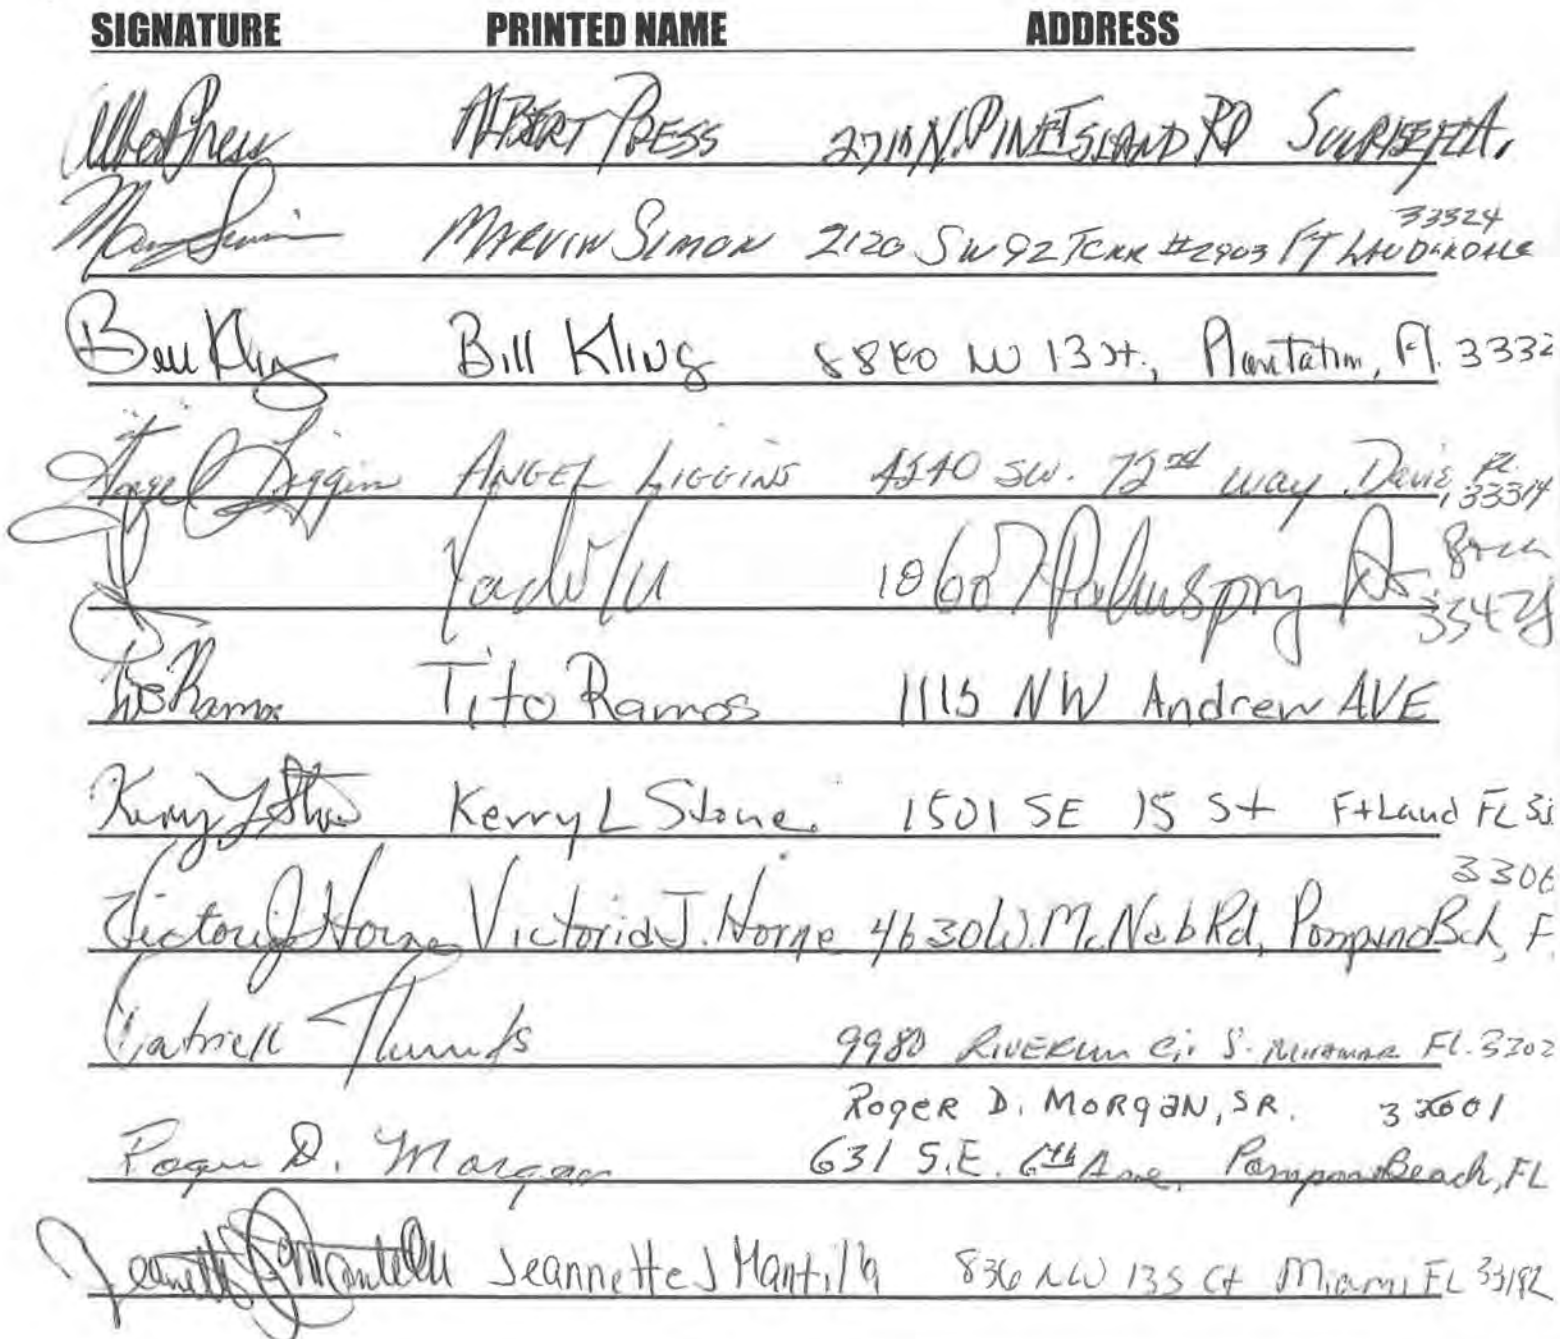 SIGNATURE PRINTED NAME ADDRESS
Albert Press ALBERT PRESS N. PINE ISLAND RD SUNRISE FLA.
33324
MARVIN SIMON 2120 SW 92 TERR #2903 FT LAUDERDALE
Bill Kling Bill Kling 8840 NW 13 St., Plantation, Fl. 3332
Angel Liggins ANGEL LIGGINS SW. 72nd way Davie, FL.
33314
Tito Ramos Tito Ramos 1115 NW Andrew AVE
Kerry L Stone Kerry L Stone. 1501 SE 15 St Ft Laud FL 33
3306
Victoria J Horne Victoria J. Horne 4630 W. McNab Rd, Pompano Bch, F
Patrick 9980 RIVERUN Cir S. MIRAMAR FL. 3302
ROGER D. MORGAN, SR.
Roger D. Morgan 631 S.E. 6th Ave, Pompano Beach, FL
Jeannette J Mantilla Jeannette J Mantilla 836 NW 135 Ct Miami FL 33182